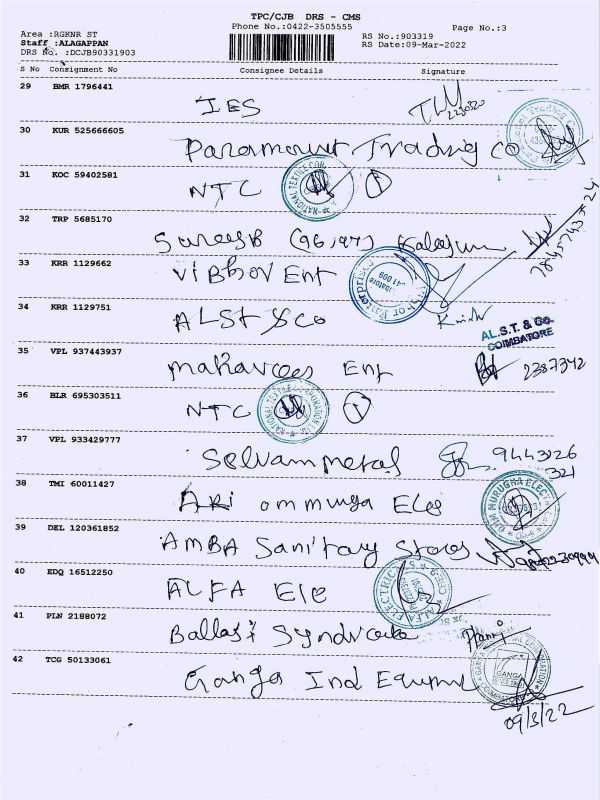 TPC/CJB DRS - CMS
Phone No.:0422-3505555
Page No.:3
Area :RGKNR ST
Staff :ALAGAPPAN
DRS No. :DCJB90331903
RS No.:903319
RS Date:09-Mar-2022
S No Consignment No Consignee Details Signature
29 BMR 1796441
IES
2230320
30 KUR 525666605
Paramount Trading Co
31 KOC 59402581
NTC
NATIONAL TEXTILE COR
32 TRP 5685170
Suresh (96,97)
7845743724
33 KRR 1129662
Vibhov Ent
Enterprises
641 009
34 KRR 1129751
ALST & Co
AL.S.T. & Co.
COIMBATORE
35 VPL 937443937
Mahaveer Ent
2387342
36 BLR 695303511
NTC
NATIONAL TEXTILE CORPORATION LTD
37 VPL 933429777
Selvam metal
9443126
321
38 TMI 60011427
om muruga Ele
OHM MURUGHA ELEC
39 DEL 120361852
AMBA Sanitary Stores
2230999
40 EDQ 16512250
ALFA Ele
ALFA ELECTRICALS
41 PLN 2188072
Ballast Syndicate
42 TCG 50133061
Ganga Ind
GANGA
09/3/22